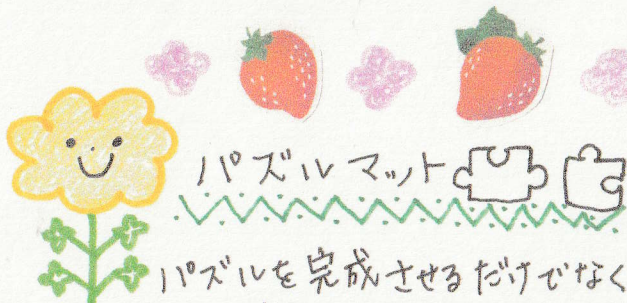 パズルマット
パズルを完成させるだけでなく